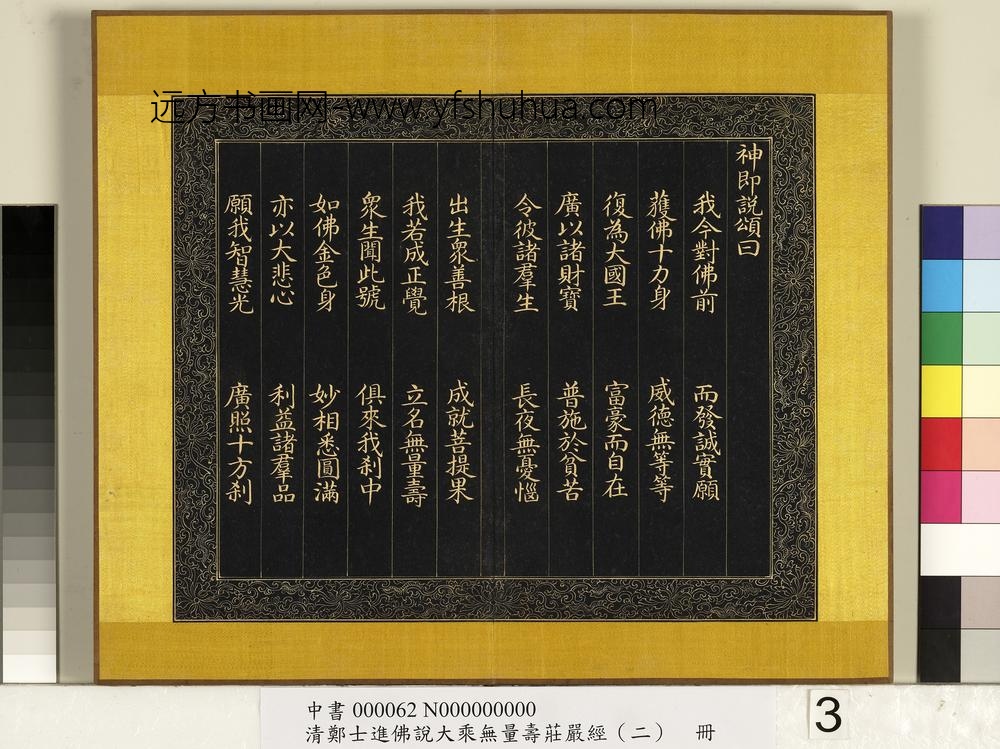 远方书画网-www.yfshuhua.com
神即說頌曰
我今對佛前 而發誠實願
獲佛十力身 威德無等等
復為大國王 富豪而自在
廣以諸財寶 普施於貧苦
令彼諸羣生 長夜無憂惱
出生衆善根 成就菩提果
我若成正覺 立名無量壽
衆生聞此號 俱來我刹中
如佛金色身 妙相悉圓滿
亦以大悲心 利益諸羣品
願我智慧光 廣照十方刹
中書 000062 N000000000
清鄭士進佛說大乘無量壽莊嚴經（二） 冊
3